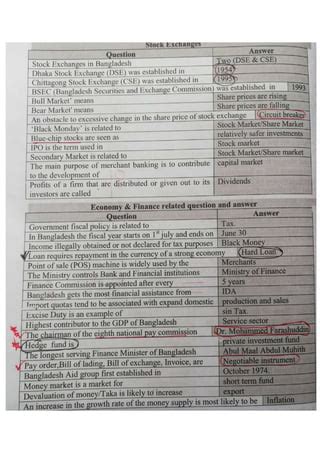 Stock Exchanges
Question Answer
Stock Exchanges in Bangladesh Two (DSE & CSE)
Dhaka Stock Exchange (DSE) was established in 1954
Chittagong Stock Exchange (CSE) was established in 1995
BSEC (Bangladesh Securities and Exchange Commission) was established in 1993
Bull Market' means Share prices are rising
Bear Market' means Share prices are falling
An obstacle to excessive change in the share price of stock exchange Circuit breaker
'Black Monday' is related to Stock Market/Share Market
Blue-chip stocks are seen as relatively safer investments
IPO is the term used in Stock market
Secondary Market is related to Stock Market/Share Market
The main purpose of merchant banking is to contribute capital market
to the development of
Profits of a firm that are distributed or given out to its Dividends
investors are called
Economy & Finance related question and answer
Question Answer
Government fiscal policy is related to Tax.
In Bangladesh the fiscal year starts on 1st july and ends on June 30
Income illegally obtained or not declared for tax purposes Black Money
Loan requires repayment in the currency of a strong economy Hard Loan
Point of sale (POS) machine is widely used by the Merchants
The Ministry controls Bank and Financial institutions Ministry of Finance
Finance Commission is appointed after every 5 years
Bangladesh gets the most financial assistance from IDA
Import quotas tend to be associated with expand domestic production and sales
Excise Duty is an example of sin Tax
Highest contributor to the GDP of Bangladesh Service sector
The chairman of the eighth national pay commission Dr. Mohammed Farashuddin
Hedge fund is private investment fund
The longest serving Finance Minister of Bangladesh Abul Maal Abdul Muhith
Pay order, Bill of lading, Bill of exchange, Invoice, are Negotiable instrument
Bangladesh Aid group first established in October 1974.
Money market is a market for short term fund
Devaluation of money/Taka is likely to increase export
An increase in the growth rate of the money supply is most likely to be Inflation